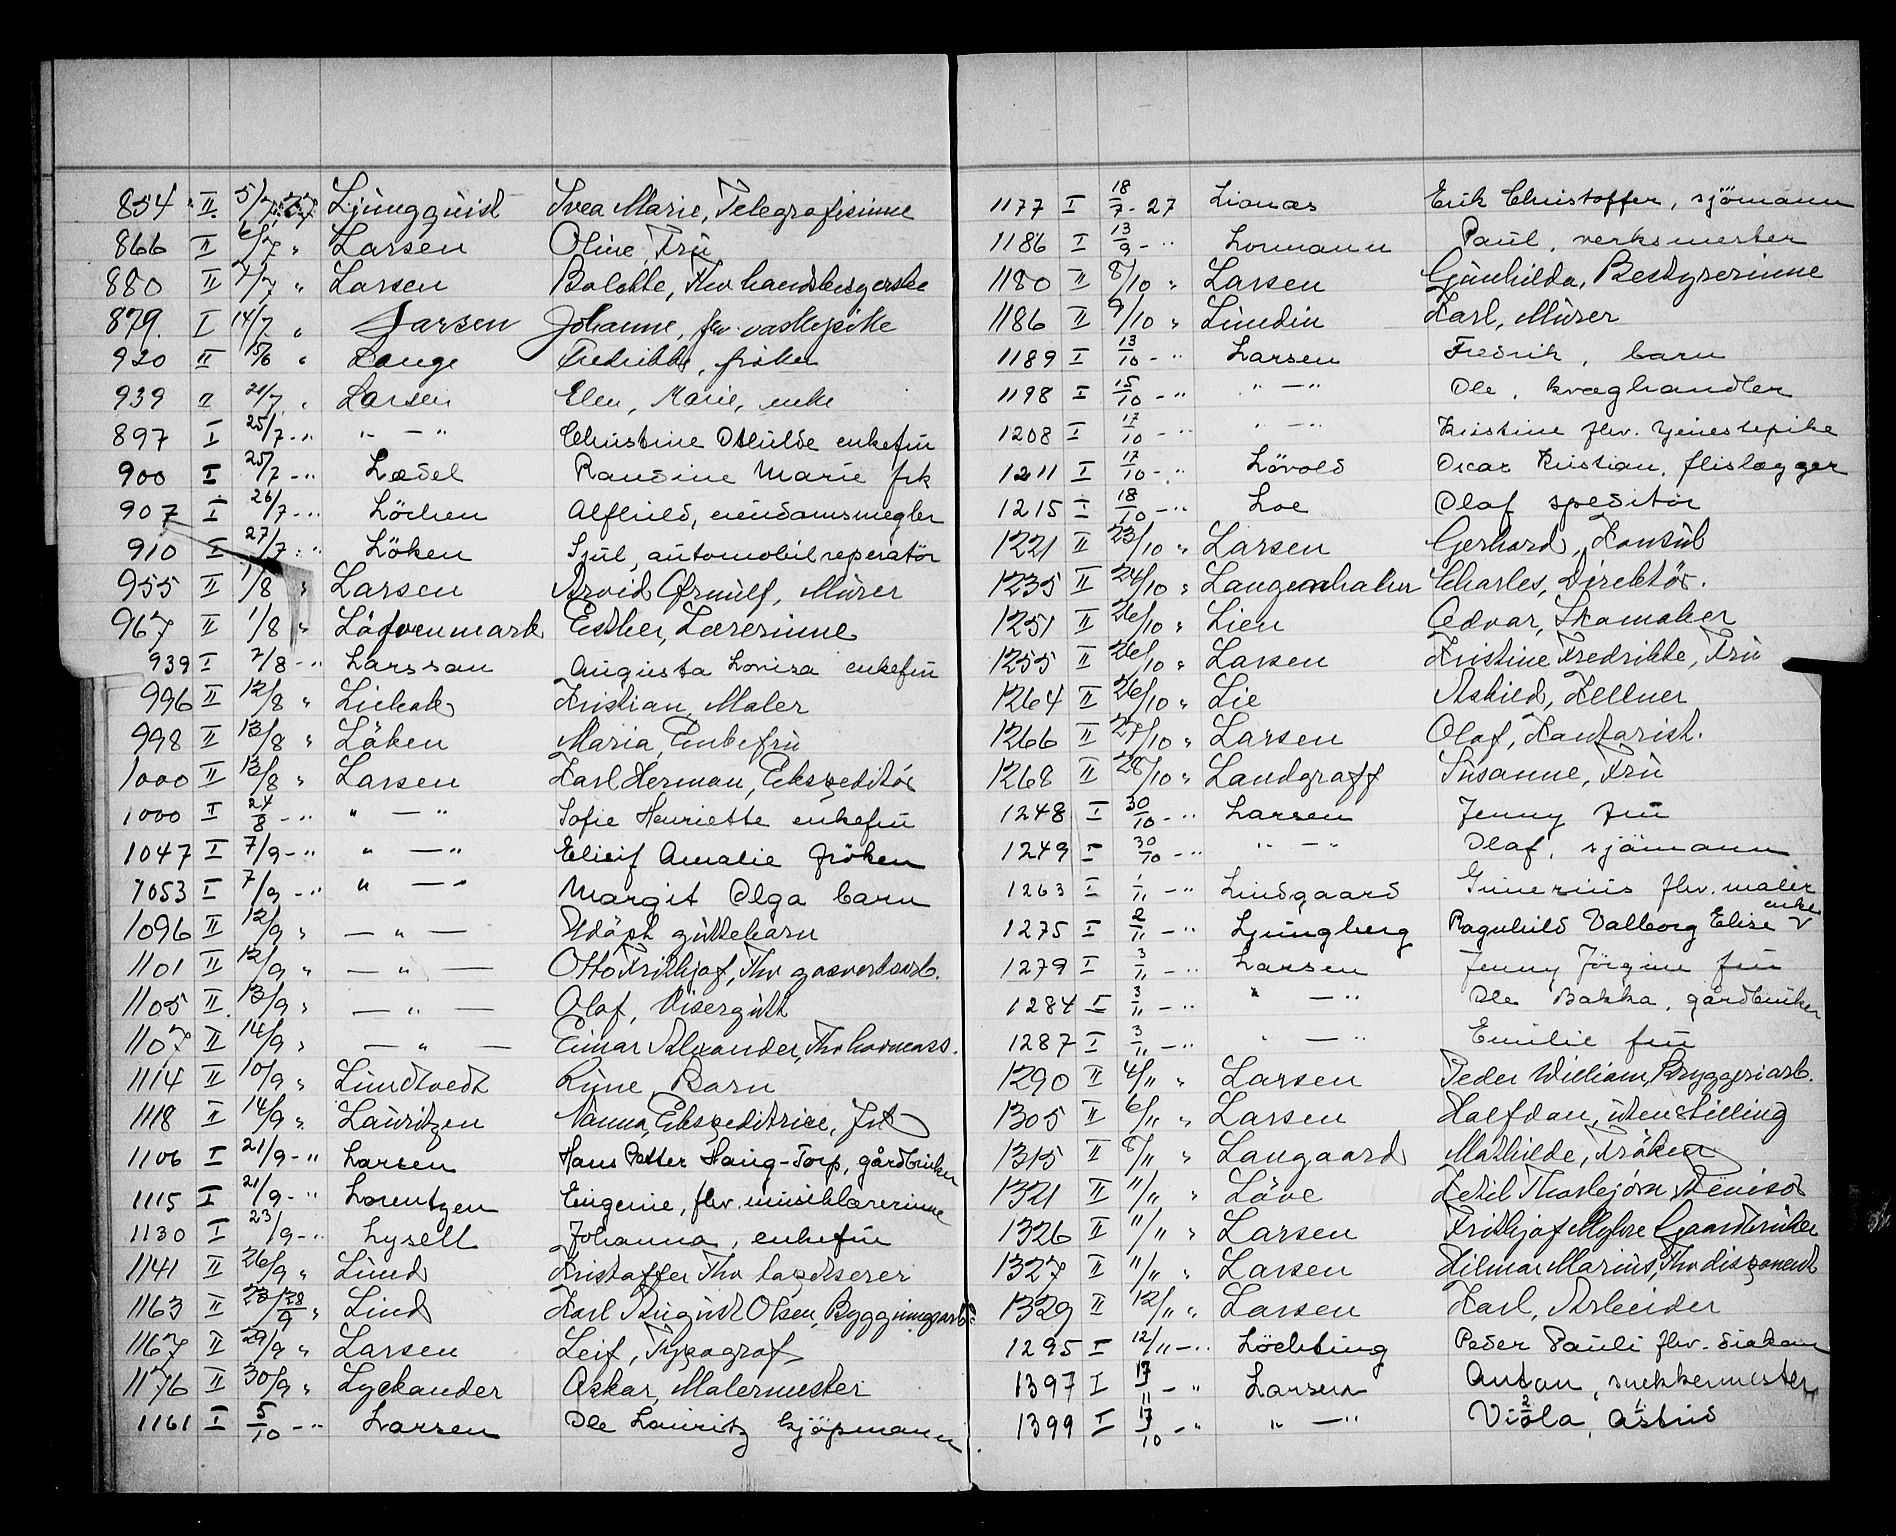 854 II 5/7 Ljungquist Svea Marie, Telegrafisinne
866 II 6/7 " Larsen Oline Fru
880 II 7/7 " Larsen Bolette, Fhv handsbesyerske
879. I 14/7 " Larsen Johanne, fhv. vaskepike
920 II 15/6 " Lange Fredrikke, fröken
939 II 21/7 " Larsen Elen, Marie, enke
897 I 25/7 - " " — " Christine Othilde enkefru
900 I 25/7 - " Lædel Randine Marie frk
907 I 26/7 - " Löchen Alfhild, eiendomsmegler
910 I 27/7 - " Löken Sjul, automobilreperatör
955 II 1/8 " Larsen Arvid Ørnulf, Murer
967 II 1/8 " Löfvenmark Esther, Lærerinne
939 I 7/8 - " Larsson Augusta Lovisa enkefru
996 II 12/8 " Liebak Kristian, Maler
998 II 13/8 " Löken Maria, Enkefru
1000 II 13/8 " Larsen Karl Herman, Ekspeditör
1000 I 24/8 - " " — " Sofie Henriette enkefru
1047 I 7/9 - " " — " Eleif Amalie fröken
1053 I 7/9 - " " — " Margit Olga barn
1096 II 12/9 " — " — Udöpt guttebarn
1101 II 12/9 " — " — Otto Frithjof, Fhv gasverksarb.
1105 II 13/9 " — " — Olaf, Visergutt
1107 II 14/9 " — " — Einar Alexander, Fhv havneass.
1114 II 10/9 " Lundtvedt Rune, Barn
1118 II 14/9 " Lauritzen Nanna, Ekspeditrice, Frk
1106 I 21/9 - " Larsen Hans Petter Haug-Torp, gårdbruker
1115 I 21/9 - " Lorentzen Eugenie, fhv. musiklærerinne
1130 I 23/9 - " Lysell Johanna, enkefru
1141 II 26/9 " Lund Kristoffer Fhv tapetserer
1163 II 23/28/9 " Lind Karl August Olsen, Bygningsarb.
1167 II 29/9 " Larsen Leif, Typograf
1176 II 30/9 " Lyckander Oskar, Malermester
1161 I 5/10 - " Larsen Ole Lauritz kjöpmann
1177 I 18/7 - 27 Lianæs Erik Christoffer, sjömann
1186 I 13/9 - " Lormann Paul, verksmester
1180 II 8/10 " Larsen Gunhilda, Bestyrerinne
1186 II 9/10 " Lundin Karl, Murer
1189 I 13/10 - " Larsen Fredrik, barn
1198 I 15/10 - " " — " Ole, kvæghandler
1208 I 17/10 - " " — " Kristine fhv. tjenestepike
1211 I 17/10 - " Lövold Oscar Kristian, flislægger
1215 I 18/10 - " Loe Olaf speditör
1221 II 23/10 " Larsen Gerhard, Konsul
1235 II 24/10 " Langenhaken Charles, Direktör.
1251 II 26/10 " Lien Edvar, Skomaker
1255 II 26/10 " Larsen Kristine Fredrikke, Fru
1264 II 26/10 " Lie Askild, Kellner
1266 II 27/10 " Larsen Olaf, Kontorist.
1268 II 28/10 " Landgraff Susanne, Fru
1248 I 30/10 - " Larsen Jenny fru
1249 I 30/10 - " " — " Olaf, sjömann
1263 I 1/11 - " Lindgaard Gunerius fhv. maler
1275 I 2/11 - " Ljungberg Ragnhild Valborg Elise enke
1279 I 3/11 - " Larsen Jenny Jörgine fru
1284 I 3/11 - " " — " Ole Bakka, gårdbruker
1287 I 3/11 - " " — " Emilie fru
1290 II 4/11 " Larsen Peder William, Bryggeriarb.
1305 II 6/11 " Larsen Halfdan, uten stilling
1315 II 8/11 " Langaard Mathilde, Fröken
1321 II 11/11 " Löve Ketil Thorbjörn Revisor
1326 II 11/11 " Larsen Frithjof Myhre Gaardbruker
1327 II 11/11 " Larsen Hilmar Marius, Fhv disponent
1329 II 12/11 " Larsen Karl, Arbeider
1295 I 12/11 - " Löchting Peder Pauli fhv. diakon
1397 I 17/11 - " Larsen Anton, snekkermester
1399 I 17/10 - " " — " Viola, Astrid